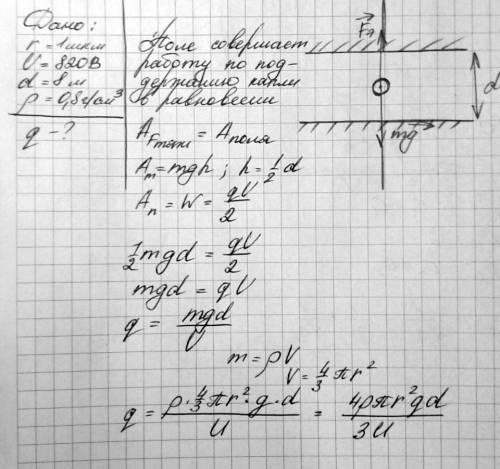 Дано:
r = 1мкм
U = 820В
d = 8м
ρ = 0,8г/см³
q - ?
Поле совершает
работу по под-
держанию капли
в равновесии
A_Fтяж = A_поля
A_т = mgh ; h = 1/2 d
A_п = W = qU/2
1/2 mgd = qU/2
mgd = qU
q = mgd/U
m = ρV
V = 4/3 πr²
q = ρ·4/3 πr²·g·d/U = 4ρπr²gd/3U
F_A
d
mg